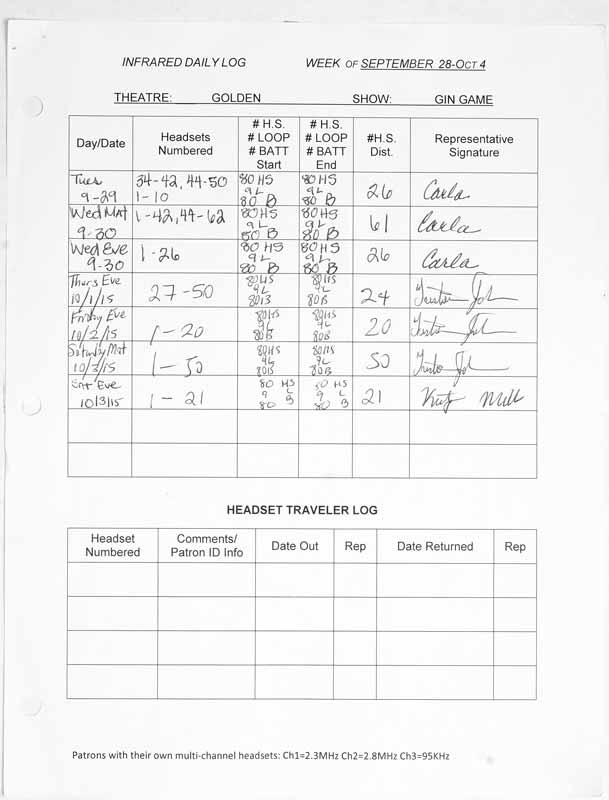 INFRARED DAILY LOG WEEK OF SEPTEMBER 28-OCT 4
THEATRE: GOLDEN SHOW: GIN GAME
Day/Date Headsets Numbered # H.S. # LOOP # BATT Start # H.S. # LOOP # BATT End #H.S. Dist. Representative Signature
Tues 9-29 34-42, 44-50 1-10 80 HS 9L 80 B 80 HS 9L 80 B 26 Carla
Wed Mat 9-30 1-42, 44-62 80 HS 9L 80 B 80 HS 9L 80 B 61 Carla
Wed Eve 9-30 1-26 80 HS 9L 80 B 80 HS 9L 80 B 26 Carla
Thurs Eve 10/1/15 27-50 80HS 9L 80B 80HS 9L 80B 24
Friday Eve 10/2/15 1-20 80HS 9L 80B 80HS 9L 80B 20
Saturday Mat 10/3/15 1-50 80HS 9L 80B 80HS 9L 80B 50
Sat Eve 10/3/15 1-21 80 HS 9 L 80 B 80 HS 9 L 80 B 21
HEADSET TRAVELER LOG
Headset Numbered Comments/ Patron ID Info Date Out Rep Date Returned Rep
Patrons with their own multi-channel headsets: Ch1=2.3MHz Ch2=2.8MHz Ch3=95KHz